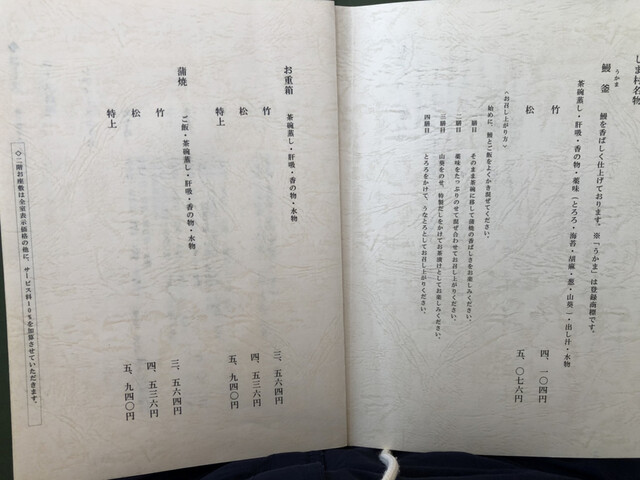 しま村名物
うかま
鰻釜　鰻を香ばしく仕上げております。※「うかま」は登録商標です。
茶碗蒸し・肝吸・香の物・薬味（とろろ・海苔・胡麻・葱・山葵）・出し汁・水物
竹　四、一〇四円
松　五、〇七六円
〈お召し上がり方〉
始めに、鰻とご飯をよくかき混ぜてください。
一膳目　そのまま茶碗に移して蒲焼の香ばしさをお楽しみください。
二膳目　薬味をたっぷりのせて混ぜ合わせてお召し上がりください。
三膳目　山葵をのせ、特製だしをかけてお茶漬けとしてお楽しみください。
四膳目　とろろをかけて、うなとろとしてお召し上がりください。
お重箱　茶碗蒸し・肝吸・香の物・水物
竹　三、五六四円
松　四、五三六円
特上　五、九四〇円
蒲焼　ご飯・茶碗蒸し・肝吸・香の物・水物
竹　三、五六四円
松　四、五三六円
特上　五、九四〇円
◇二階お座敷は全室表示価格の他に、サービス料10％を加算させていただきます。